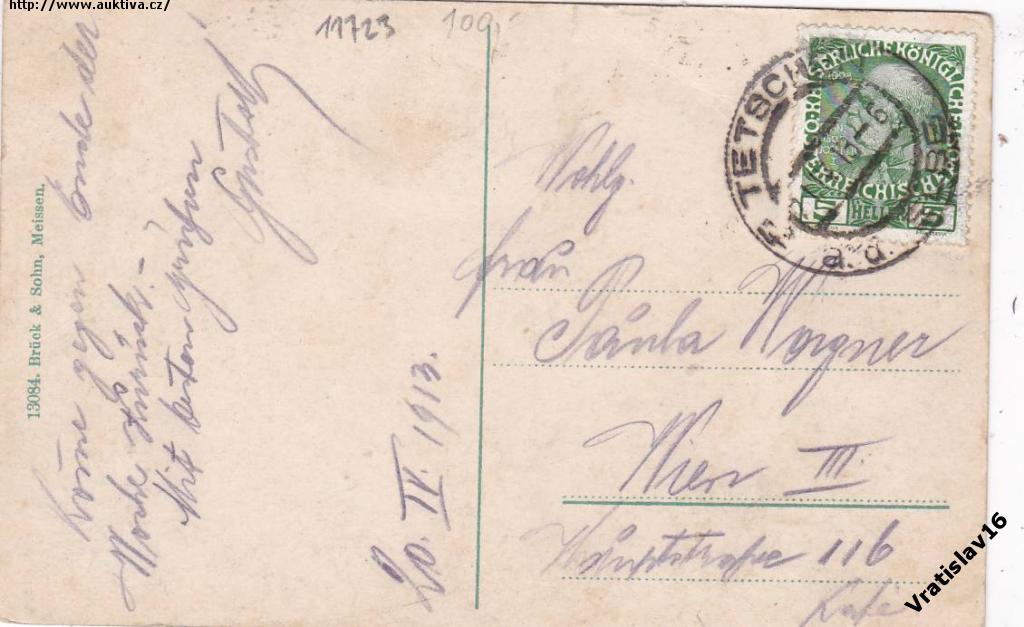 http://www.auktiva.cz/
11723
100,-
komme gegen Ende der
Woche zurück.-
Mit besten Grüßen
Gustav
20. IV. 1913.
13084. Brück & Sohn, Meissen.
Wohlg.
Frau
Paula Wagner
Wien III.
Hauptstraße 116
Café
TETSCHEN a. d. ELBE
KAISERLICHE KÖNIGLICHE ÖSTERREICHISCHE
5 HELLER 5
Vratislav16